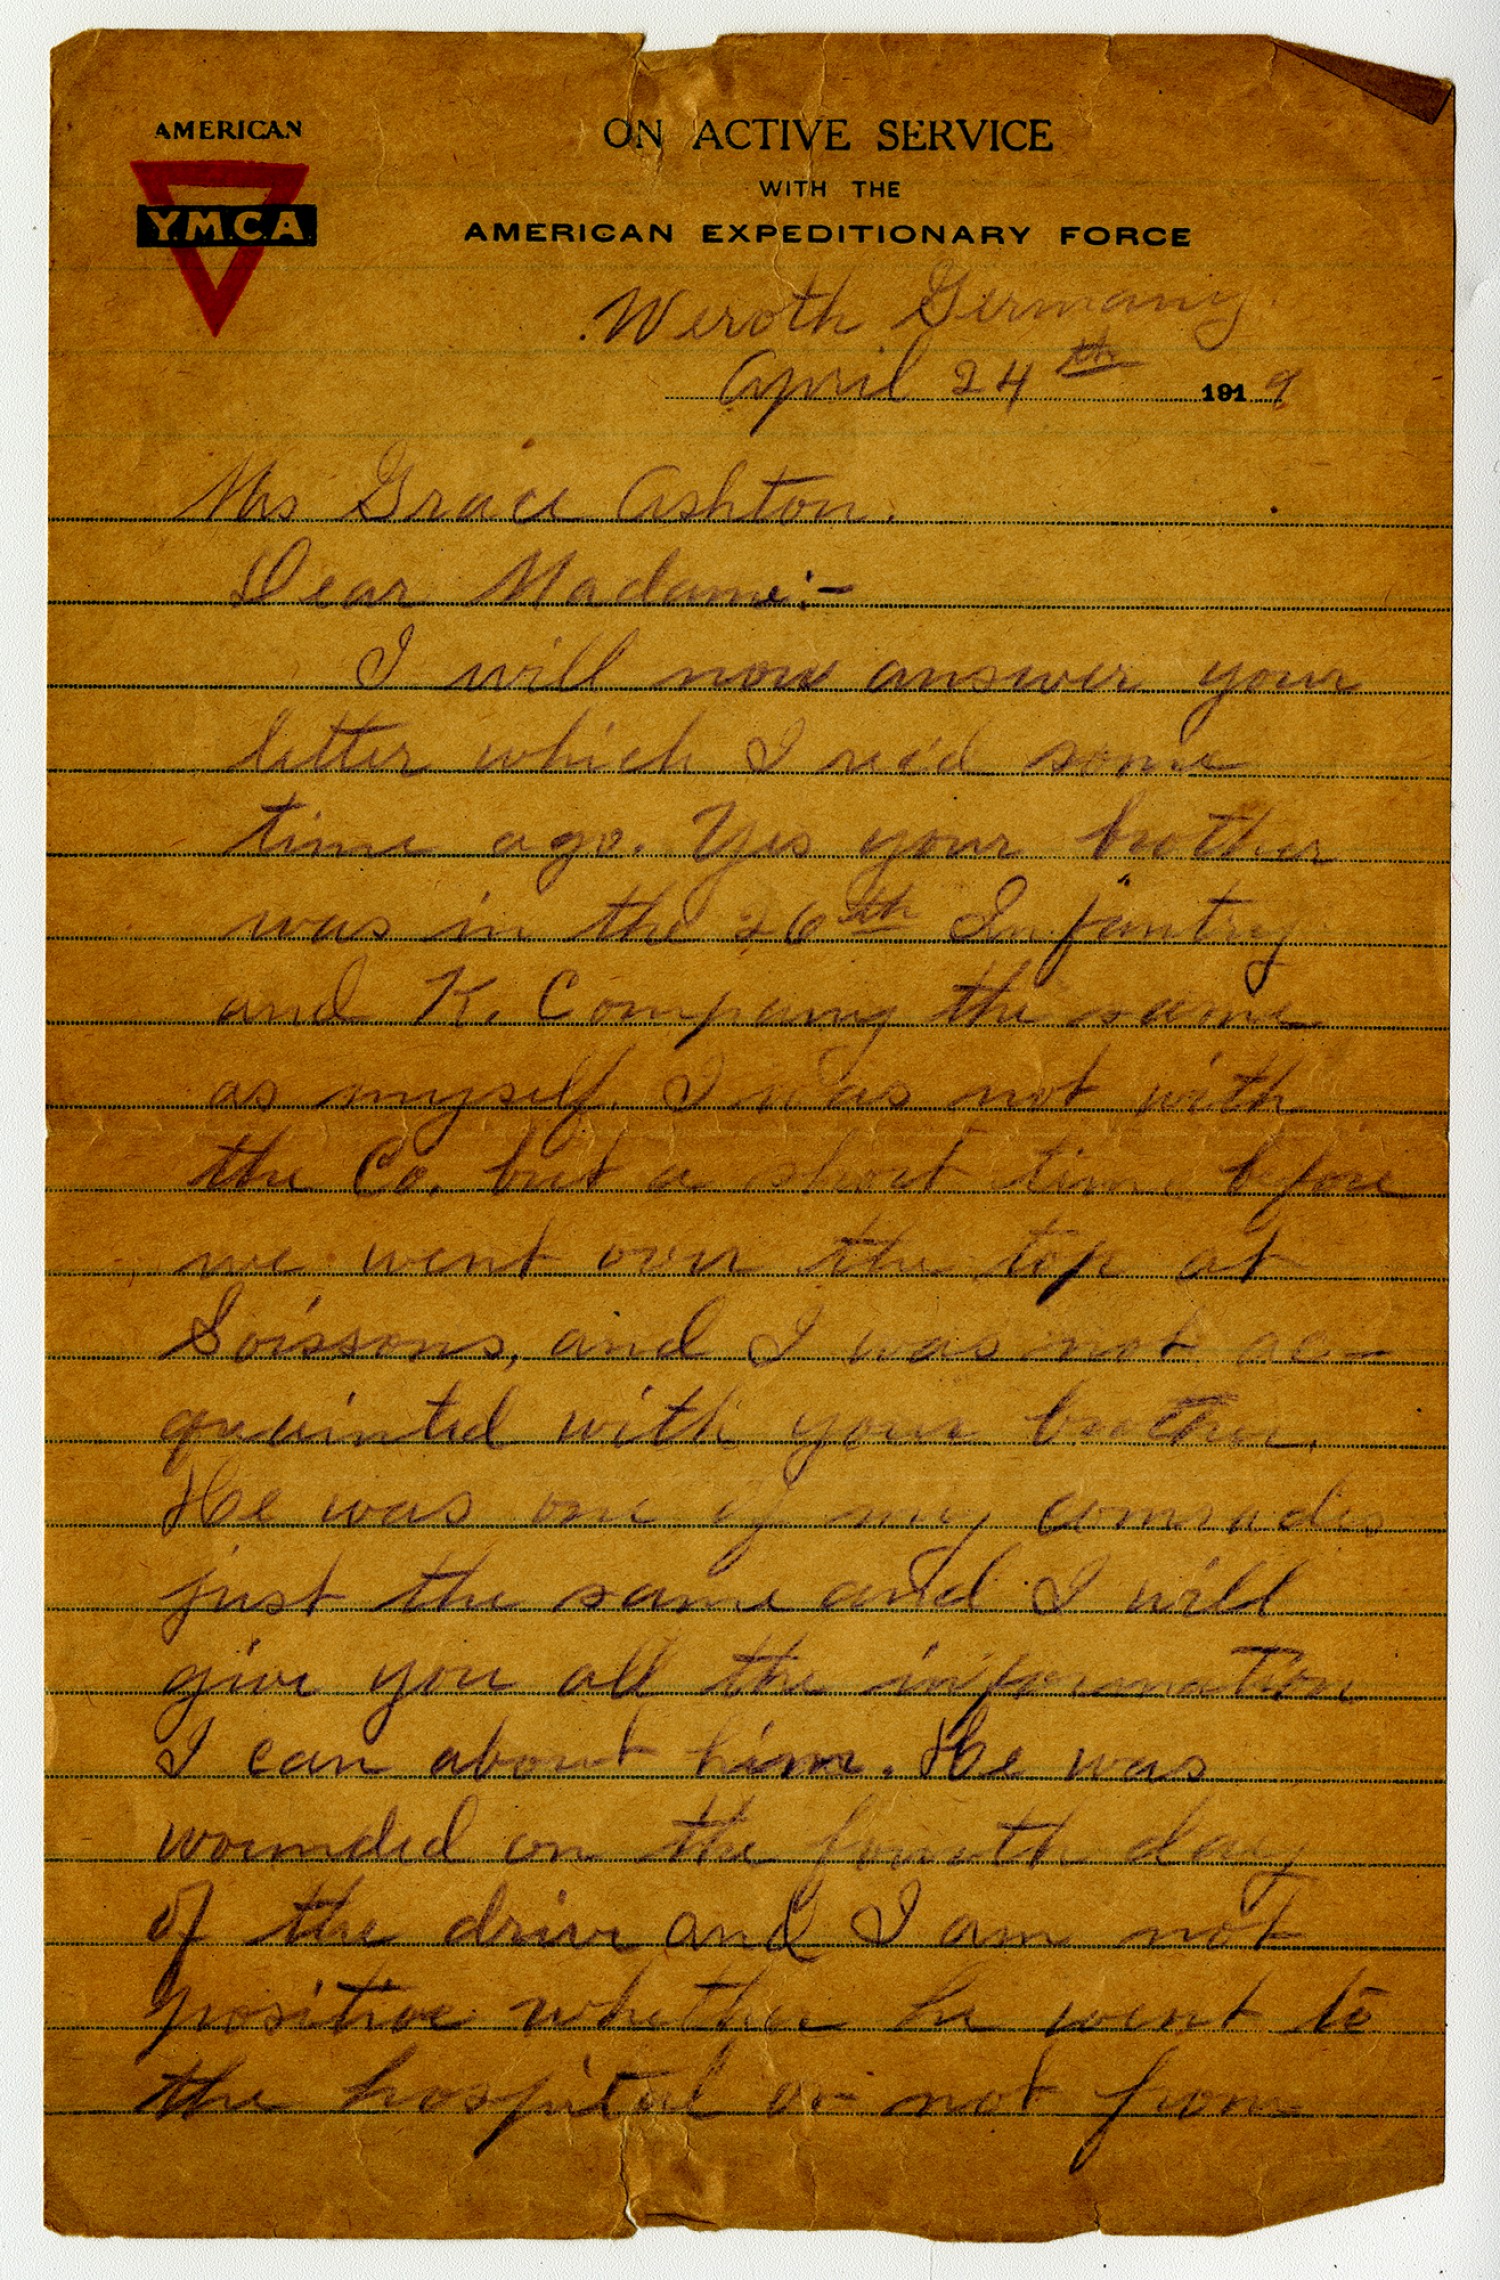 AMERICAN
Y.M.C.A.
ON ACTIVE SERVICE
WITH THE
AMERICAN EXPEDITIONARY FORCE
Weroth Germany.
April 24th 1919
Mrs Grace Ashton.
Dear Madame:-
I will now answer your
letter which I rec'd some
time ago. Yes your brother
was in the 26th Infantry
and K. Company the same
as myself. I was not with
the Co. but a short time before
we went over the top at
Soissons, and I was not ac-
quainted with your brother.
He was one of my comrades
just the same and I will
give you all the information
I can about him. He was
wounded on the fourth day
of the drive and I am not
positive whether he went to
the hospital or not from